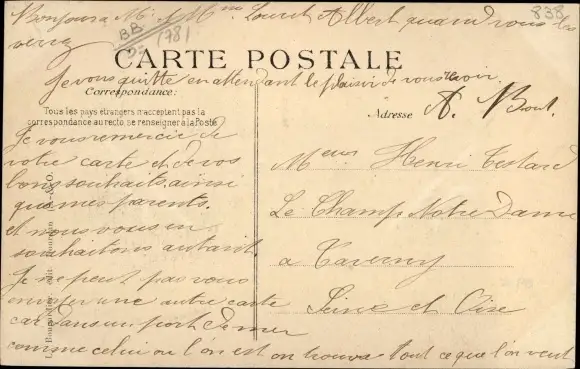 Bonjour a Mr & Mme Louret Albert quand vous les
verrez
838
BB
781
CARTE POSTALE
Je vous quitte en attendant le plaisir de vous revoir.
Correspondance:
Tous les pays étrangers n'acceptent pas la
correspondance au recto, se renseigner à la Poste
Je vous remercie de
votre carte et de vos
bons souhaits, ainsi
que mes parents.
et nous vous en
souhaitons autant.
Je ne peut pas vous
envoyer une autre carte
car dans un port de mer
comme celui ou l'on est on trouve tout ce que l'on veut
Adresse
A. Bout.
Henri Testard
Le Champ Notre Dame
a Taverny
Seine et Oise